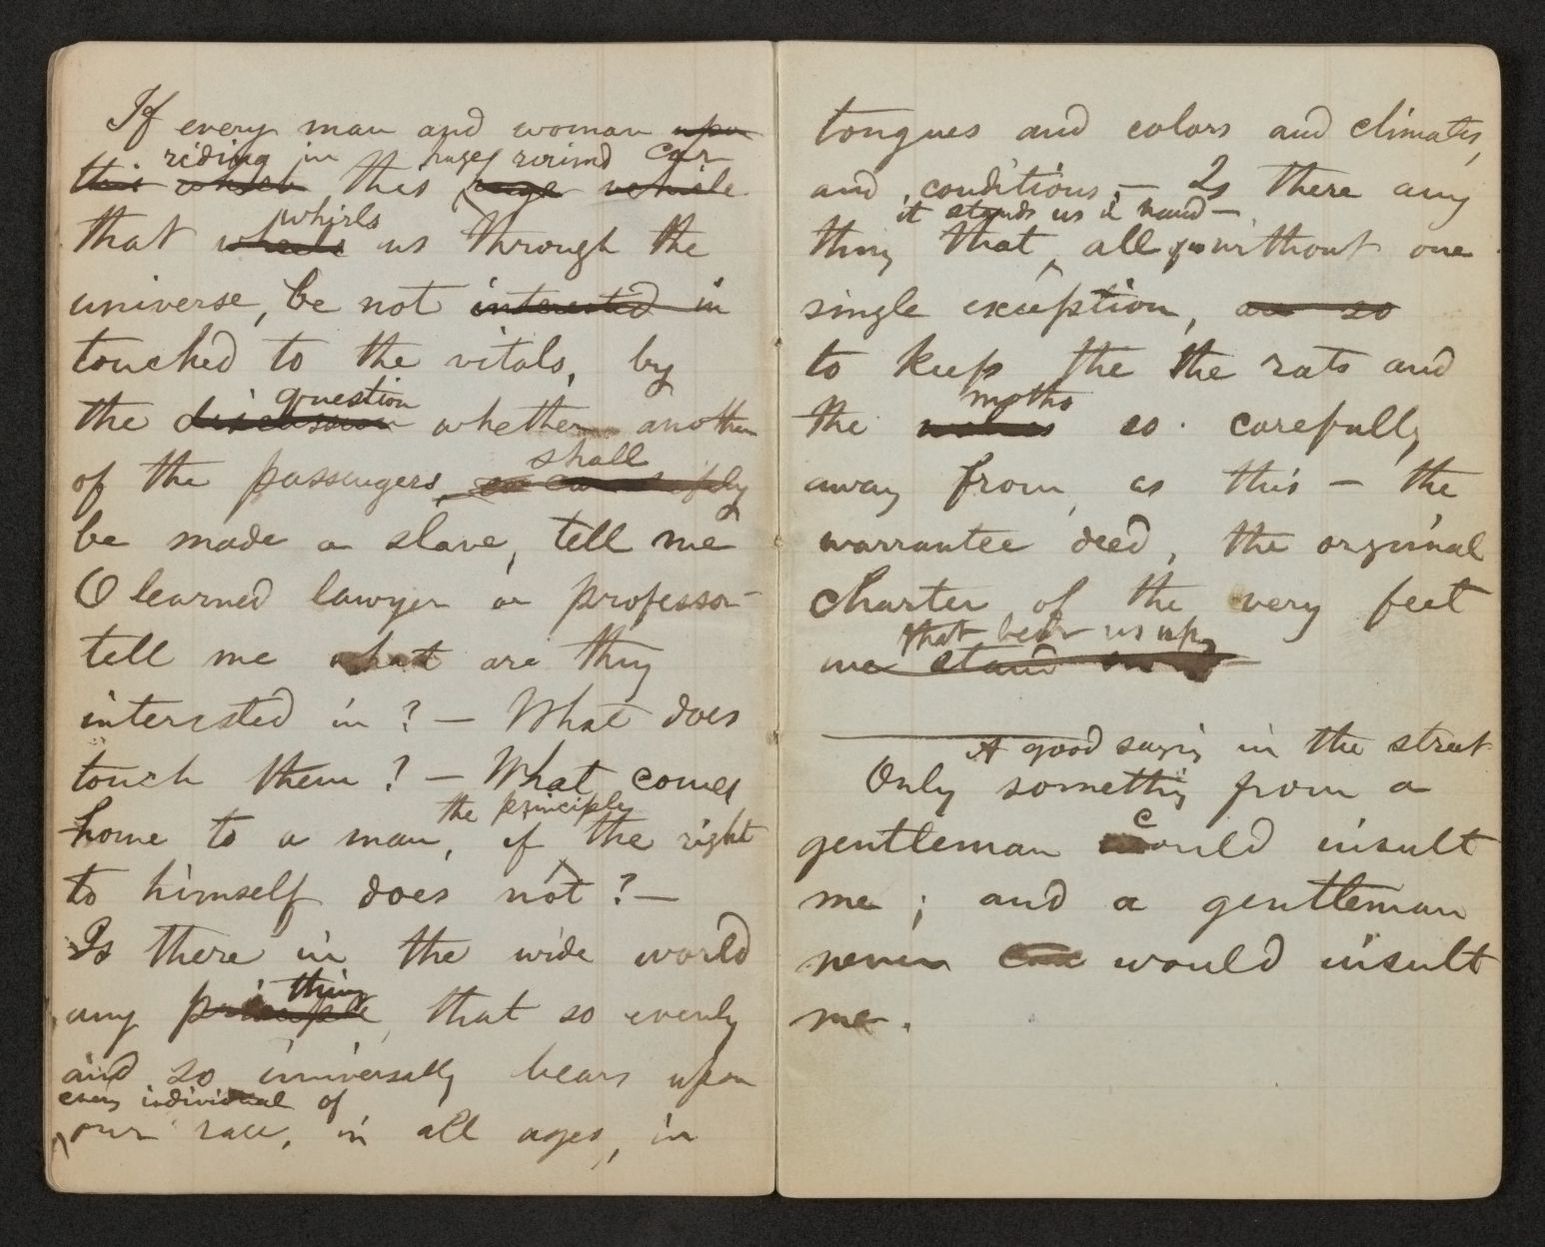 If every man and woman upon
riding in huge round car
this which this huge vehicle
whirls
that wheels us through the
universe, be not interested in
touched to the vitals, by
question
the discussion whether another
shall
of the passengers,
be made a slave, tell me
O learned lawyer or professor—
tell me what are they
interested in? — What does
touch them? — What comes
the principle
home to a man, if the right
to himself does not? —
Is there in the wide world
thing
any principle, that so evenly
and so universally bears upon
every individual of
our race, in all ages, in
tongues and colors and climates,
and conditions, — Is there any
it stands us in hand —
thing that all without one
single exception, as so
to keep the the rats and
moths
the so carefully
away from, as this — the
warrantee deed, the original
charter of the very feet
that bear us up
we stand on
A good saying in the street
Only something from a
c
gentleman could insult
me; and a gentleman
never would insult
me.